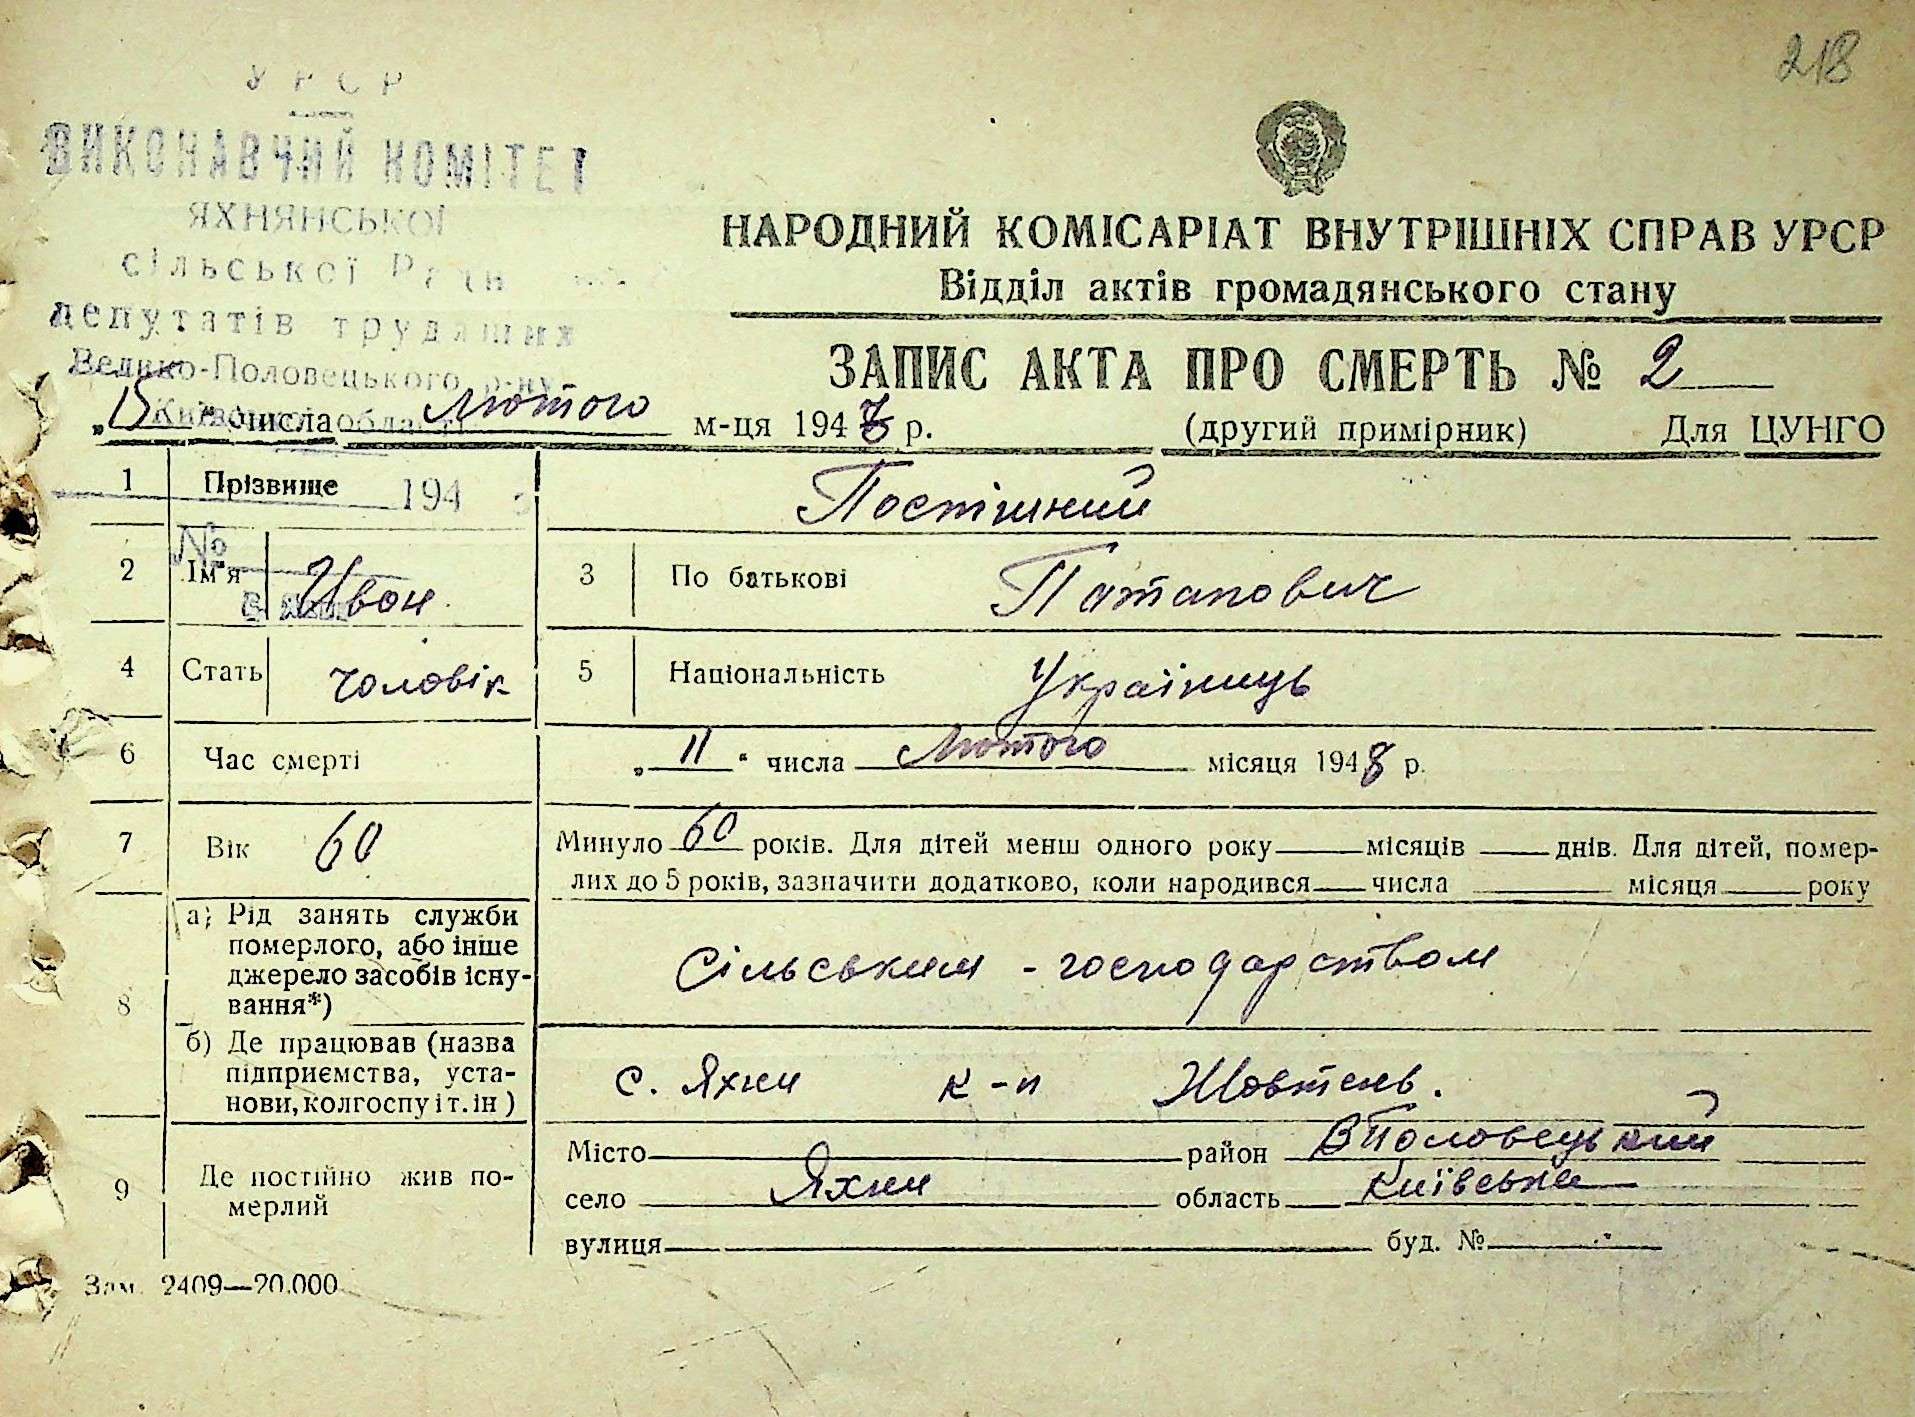 218
УРСР
ВИКОНАВЧИЙ КОМІТЕТ
ЯХНЯНСЬКОЇ
сільської Ради
депутатів трудящих
Велико-Половецького р-ну
Київської області
194
№
НАРОДНИЙ КОМІСАРІАТ ВНУТРІШНІХ СПРАВ УРСР
Відділ актів громадянського стану
ЗАПИС АКТА ПРО СМЕРТЬ № 2
„15“ числа лютого м-ця 1948 р. (другий примірник) Для ЦУНГО
1 Прізвище Постішний
2 Ім'я Иван 3 По батькові Патапович
4 Стать чоловік 5 Національність Українець
6 Час смерті „11“ числа Лютого місяця 1948 р.
7 Вік 60 Минуло 60 років. Для дітей менш одного року місяців днів. Для дітей, помер-
лих до 5 років, зазначити додатково, коли народився числа місяця року
8 а) Рід занять служби
померлого, або інше
джерело засобів існу-
вання*)
Сільським - господарством
б) Де працював (назва
підприємства, уста-
нови, колгоспу і т. ін)
с. Яхни к-п Жовтень.
9 Де постійно жив по-
мерлий
Місто район ВПоловецький
село Яхни область Київська
вулиця буд. №
Зам. 2409—20.000